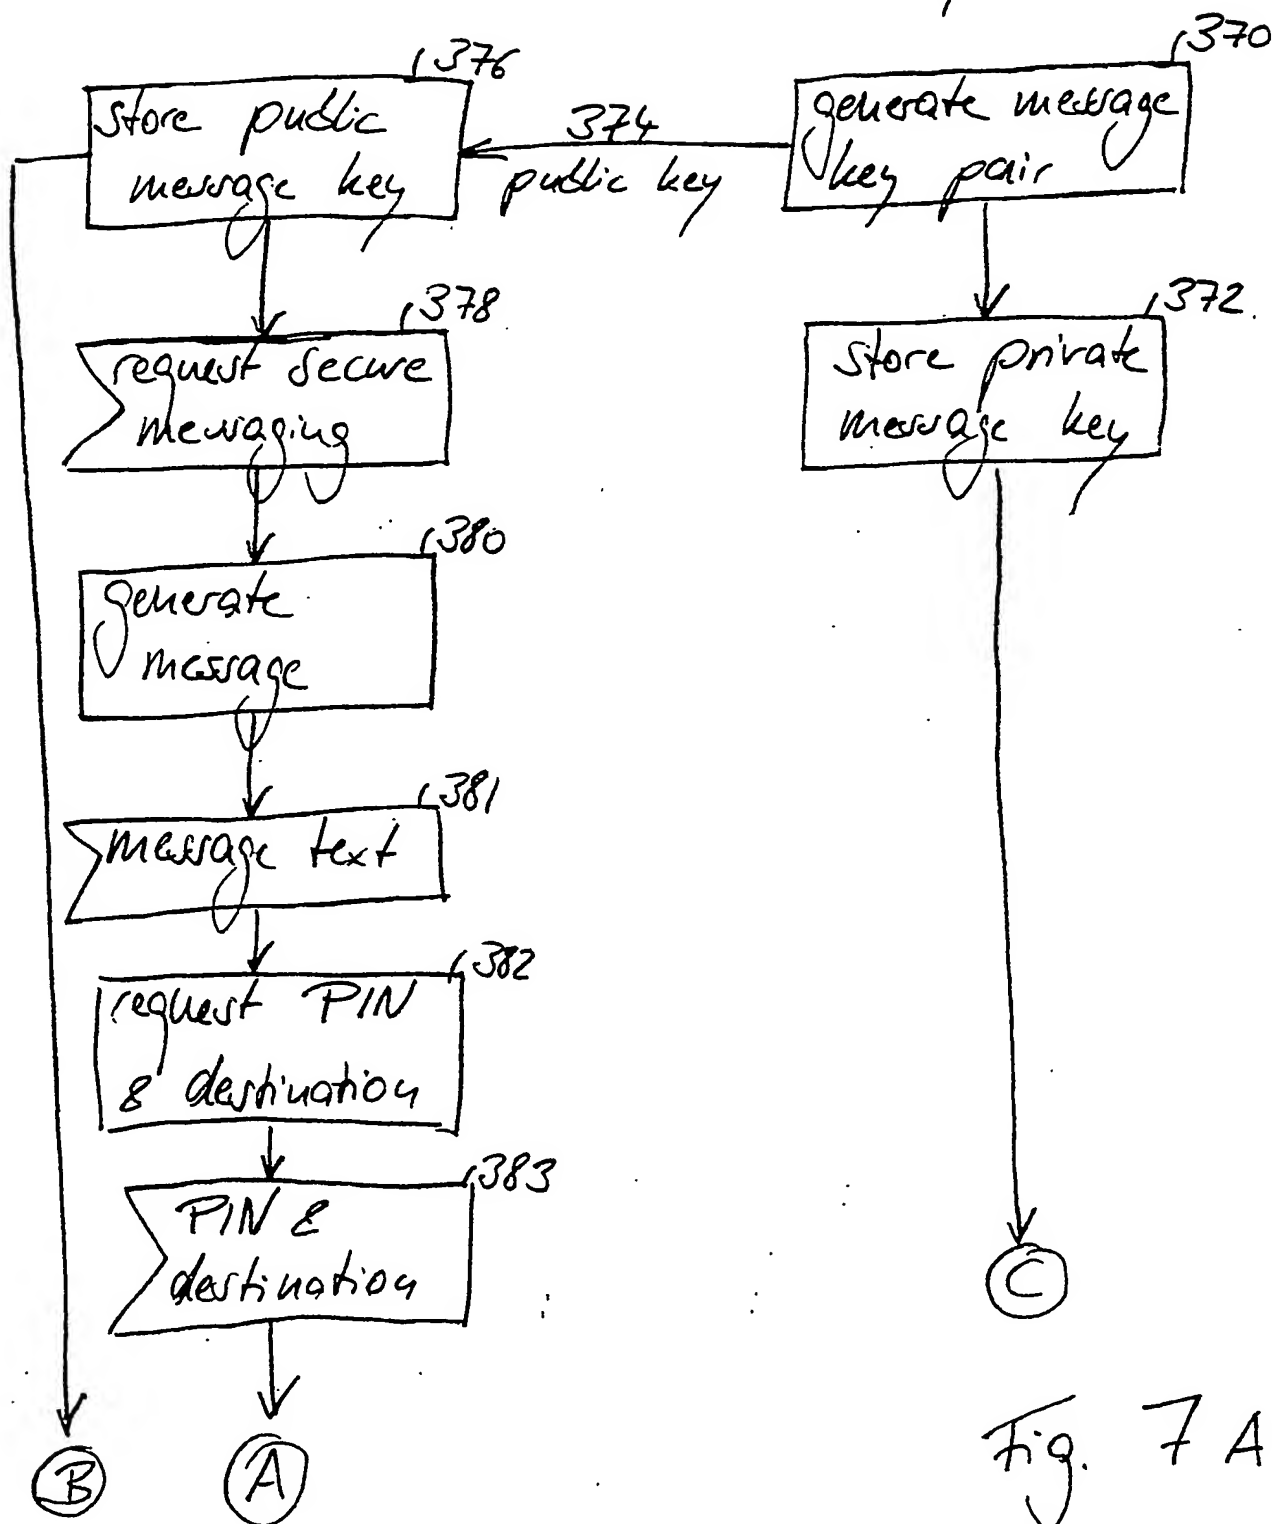 376
store public
message key
374
public key
370
generate message
key pair
372
store private
message key
378
request secure
messaging
380
generate
message
381
message text
382
request PIN
& destination
383
PIN &
destination
C
B
A
Fig. 7A